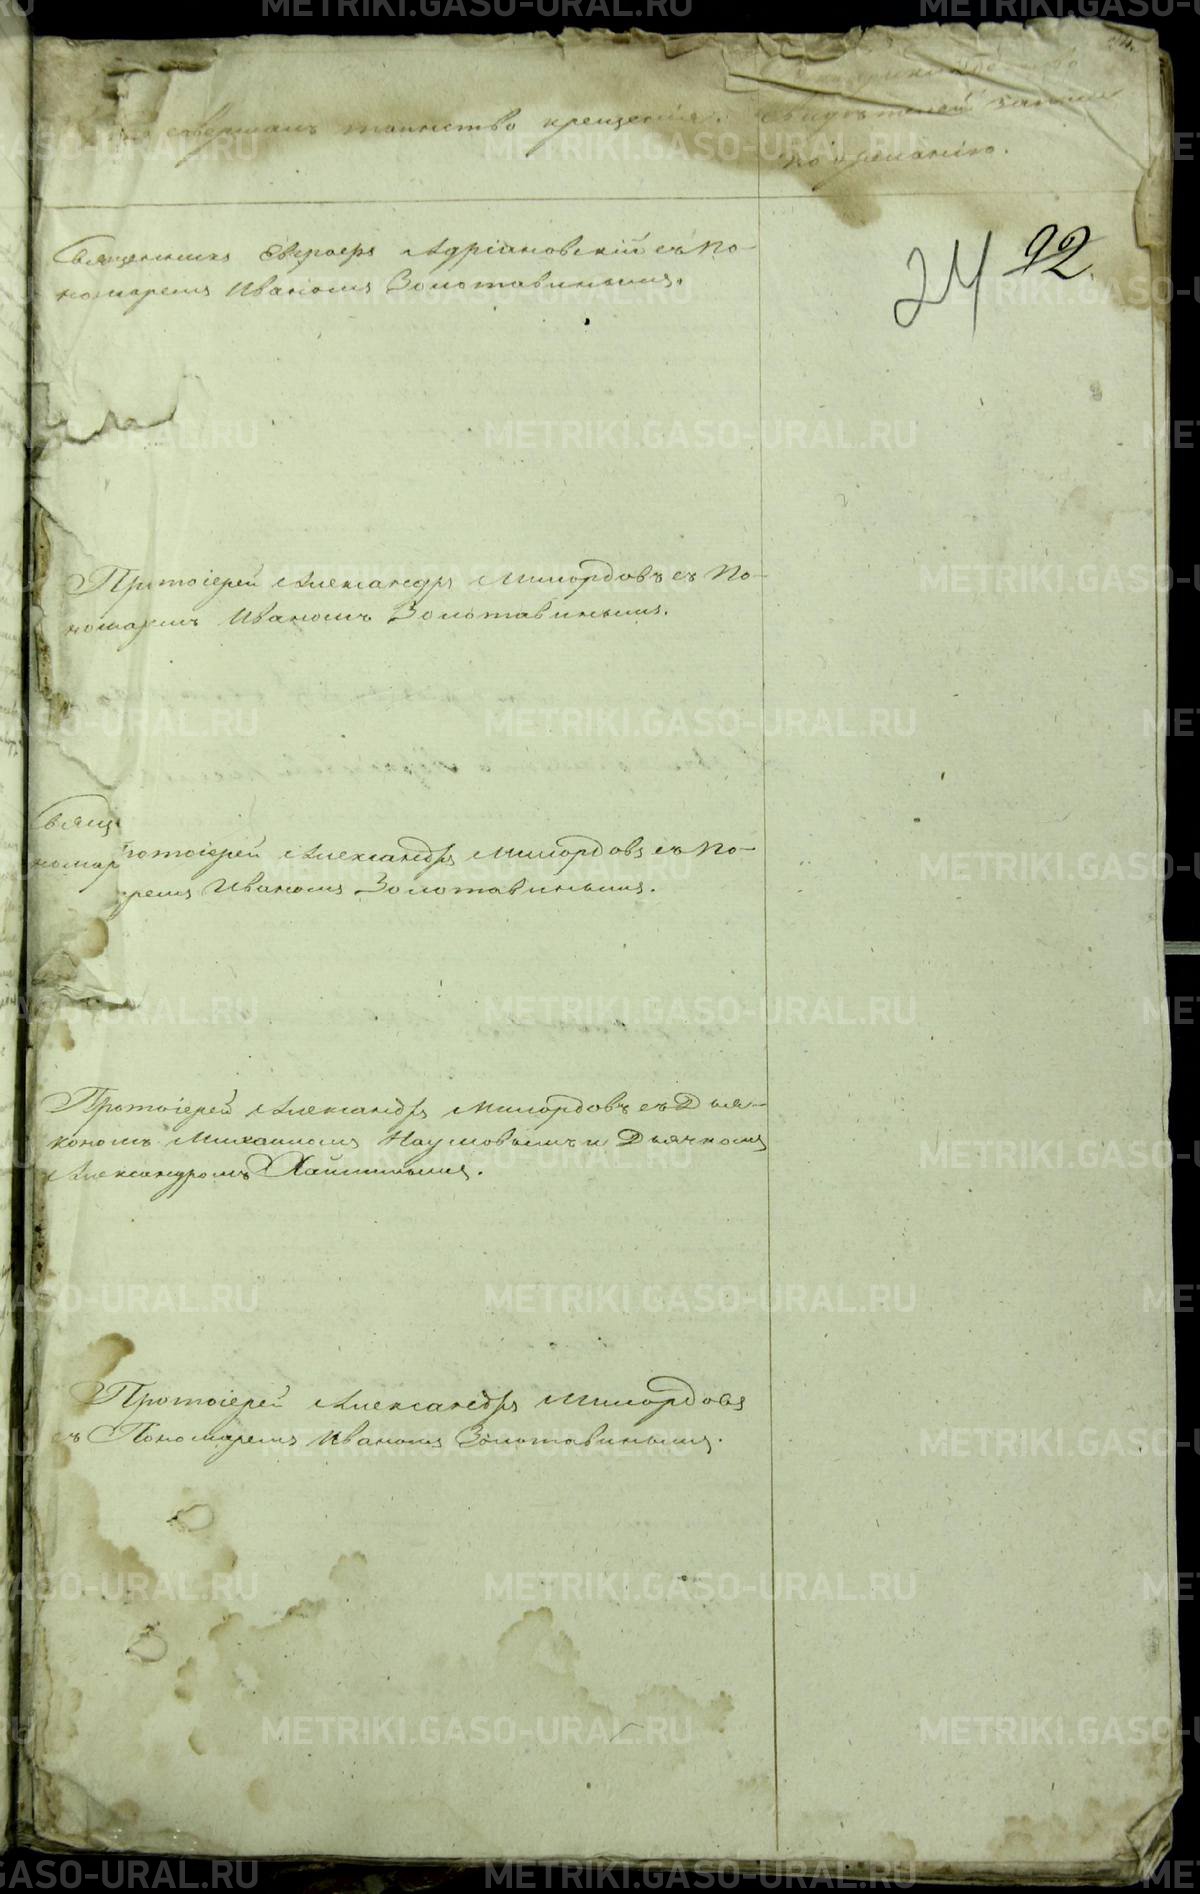 совершалъ таинство крещенія.
Свидѣтелей записи
по желанію.
24 92
Священникъ Адріановскій съ По-
номаремъ Иваномъ Золотавинымъ.
Протоіерей Александръ Милордовъ съ По-
номаремъ Иваномъ Золотавинымъ.
Свящ
номар
ротоіерей Александръ Милордовъ съ По-
ремъ Иваномъ Золотавинымъ.
Протоіерей Александръ Милордовъ съ Дья-
кономъ Михаиломъ Наумовымъ и Дьячкомъ
Александромъ
Протоіерей Александръ Милордовъ
съ Пономаремъ Иваномъ Золотавинымъ.
METRIKI.GASO-URAL.RU